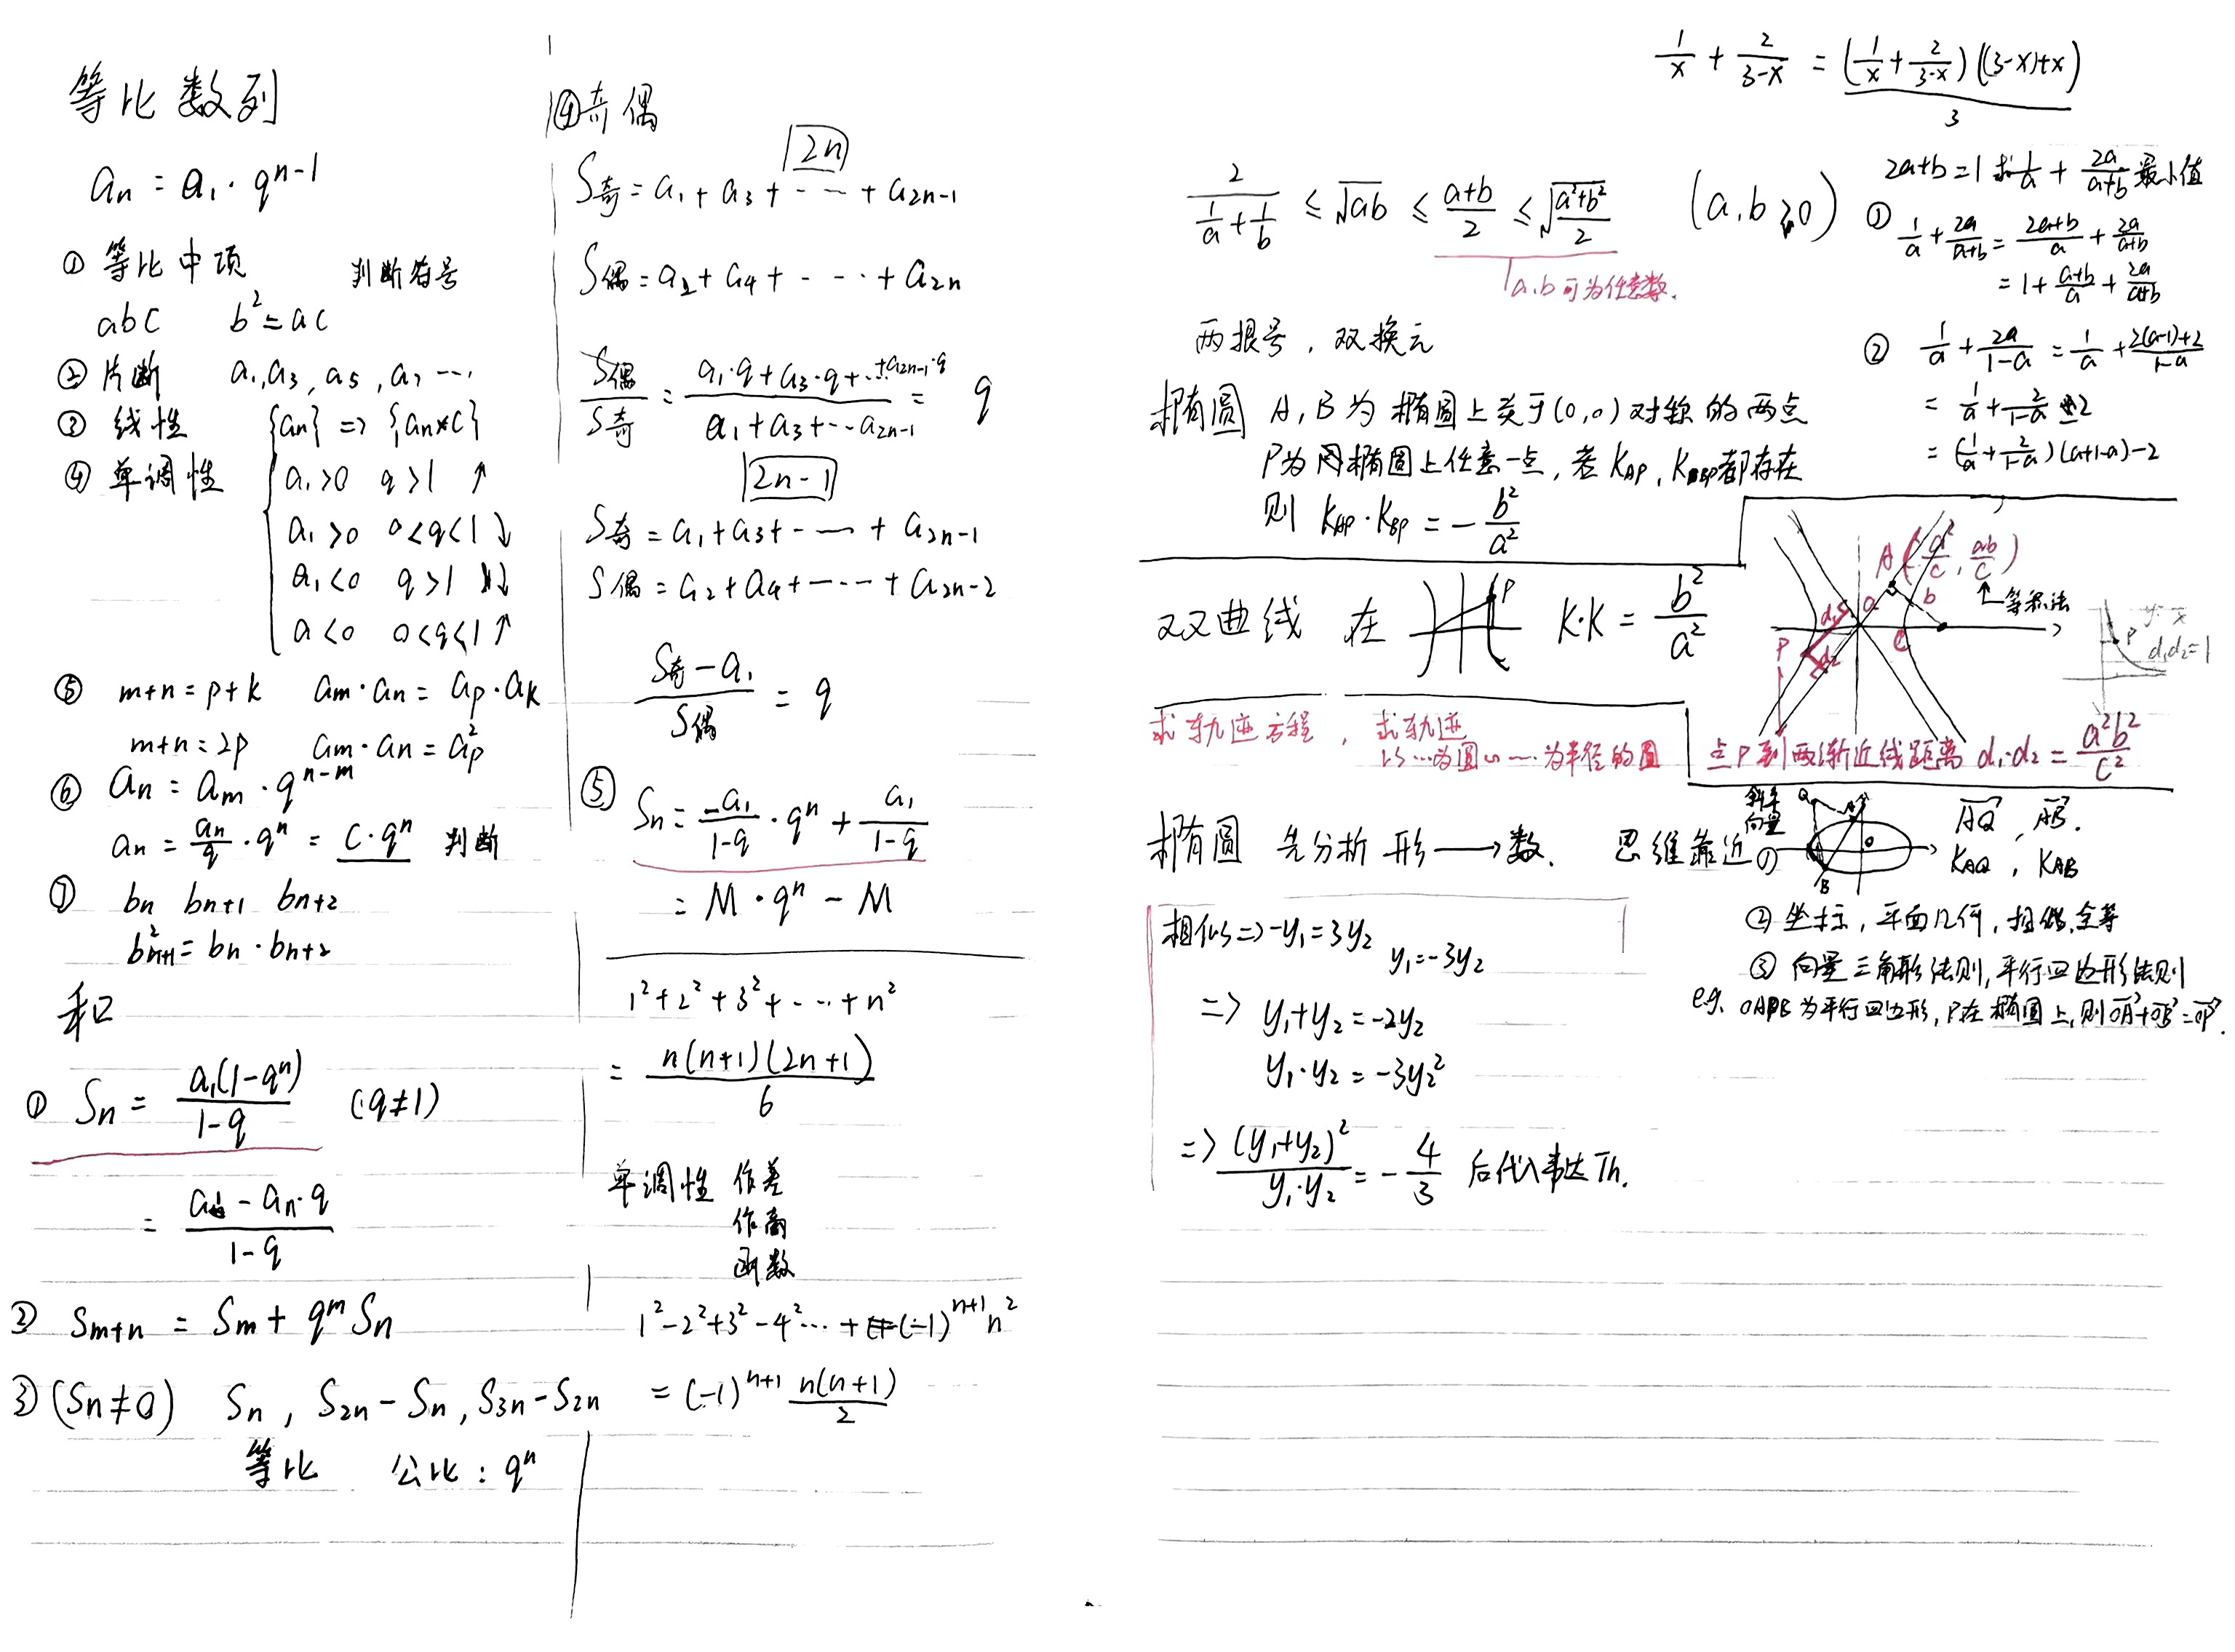 等比数列
aₙ = a₁·qⁿ⁻¹
① 等比中项 判断符号
abc b² = ac
② 片断 a₁,a₃,a₅,a₇…
③ 线性 {aₙ} => {aₙ*c}
④ 单调性
a₁>0 q>1 ↑
a₁>0 0<q<1 ↓
a₁<0 q>1 ↓
a<0 0<q<1 ↑
⑤ m+n=p+k aₘ·aₙ = aₚ·aₖ
m+n=2p aₘ·aₙ = aₚ²
⑥ aₙ = aₘ·qⁿ⁻ᵐ
aₙ = aₙ/q·qⁿ = c·qⁿ 判断
⑦ bₙ bₙ₊₁ bₙ₊₂
b²ₙ₊₁ = bₙ·bₙ₊₂
和
① Sₙ = a₁(1-qⁿ)/(1-q) (q≠1)
= (a₁-aₙ·q)/(1-q)
② Sₘ₊ₙ = Sₘ + qᵐSₙ
③ (Sₙ≠0) Sₙ, S₂ₙ-Sₙ, S₃ₙ-S₂ₙ
等比 公比:qⁿ
④奇偶
2n
S奇 = a₁+a₃+……+a₂ₙ₋₁
S偶 = a₂+a₄+……+a₂ₙ
S偶/S奇 = (a₁·q+a₃·q+…+a₂ₙ₋₁·q)/(a₁+a₃+…a₂ₙ₋₁) = q
2n-1
S奇 = a₁+a₃+……+a₂ₙ₋₁
S偶 = a₂+a₄+……+a₂ₙ₋₂
(S奇-a₁)/S偶 = q
⑤ Sₙ = -a₁/(1-q)·qⁿ + a₁/(1-q)
= M·qⁿ - M
1²+2²+3²+…+n²
= n(n+1)(2n+1)/6
单调性 作差
作商
函数
1²-2²+3²-4²…+(-1)ⁿ⁺¹n²
= (-1)ⁿ⁺¹ n(n+1)/2
1/x + 2/(3-x) = (1/x + 2/(3-x))((3-x)+x)/3
2/(1/a+1/b) ≤ √ab ≤ (a+b)/2 ≤ √((a²+b²)/2) (a,b≥0)
a,b可为任意数.
2a+b=1 求1/a + 2a/(a+b)最小值
① 1/a + 2a/(a+b) = (2a+b)/a + 2a/(a+b)
= 1 + (a+b)/a + 2a/(a+b)
② 1/a + 2a/(1-a) = 1/a + (2(a-1)+2)/(1-a)
= 1/a + 2/(1-a) - 2
= (1/a + 2/(1-a))(a+1-a)-2
两根号,双换元
椭圆 A,B为椭圆上关于(0,0)对称的两点
P为椭圆上任意一点,若Kᴀᴘ,Kʙᴘ都存在
则 Kᴀᴘ·Kʙᴘ = -b²/a²
双曲线 在 P K·K = b²/a²
A(a²/c, ab/c)
等积法
a b c
d₁ d₂ P
P d₁d₂=1
点P到两渐近线距离 d₁·d₂ = a²b²/c²
求轨迹方程,求轨迹
以…为圆心…为半径的圆
椭圆 先分析 形→数. 思维靠近①
斜率
向量
Q A O B
AQ→, AB→.
Kᴀǫ, Kᴀʙ
② 坐标,平面几何,相似,全等
③ 向量三角形法则,平行四边形法则
e.g. OAPB为平行四边形,P在椭圆上,则OA→+OB→=OP→.
相似=>-y₁=3y₂
y₁=-3y₂
=> y₁+y₂=-2y₂
y₁·y₂=-3y₂²
=> (y₁+y₂)²/(y₁·y₂) = -4/3 后代入韦达Th.